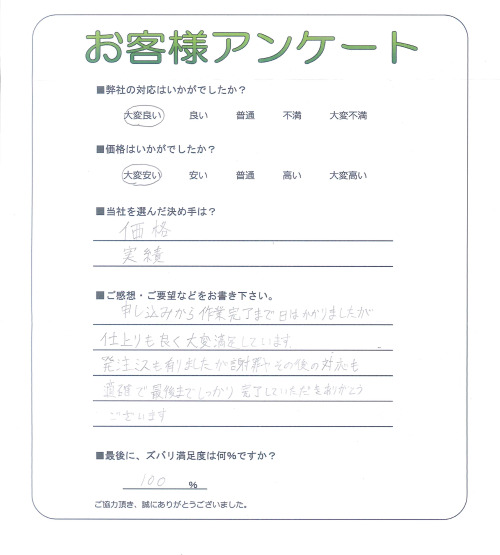 お客様アンケート
■弊社の対応はいかがでしたか？
大変良い 良い 普通 不満 大変不満
■価格はいかがでしたか？
大変安い 安い 普通 高い 大変高い
■当社を選んだ決め手は？
価格
実績
■ご感想・ご要望などをお書き下さい。
申し込みから作業完了まで日はかかりましたが
仕上りも良く大変満足しています。
発注ミスも有りましたが謝罪やその後の対応も
適確で最後までしっかり完了していただきありがとう
ございます
■最後に、ズバリ満足度は何%ですか？
100 %
ご協力頂き、誠にありがとうございました。